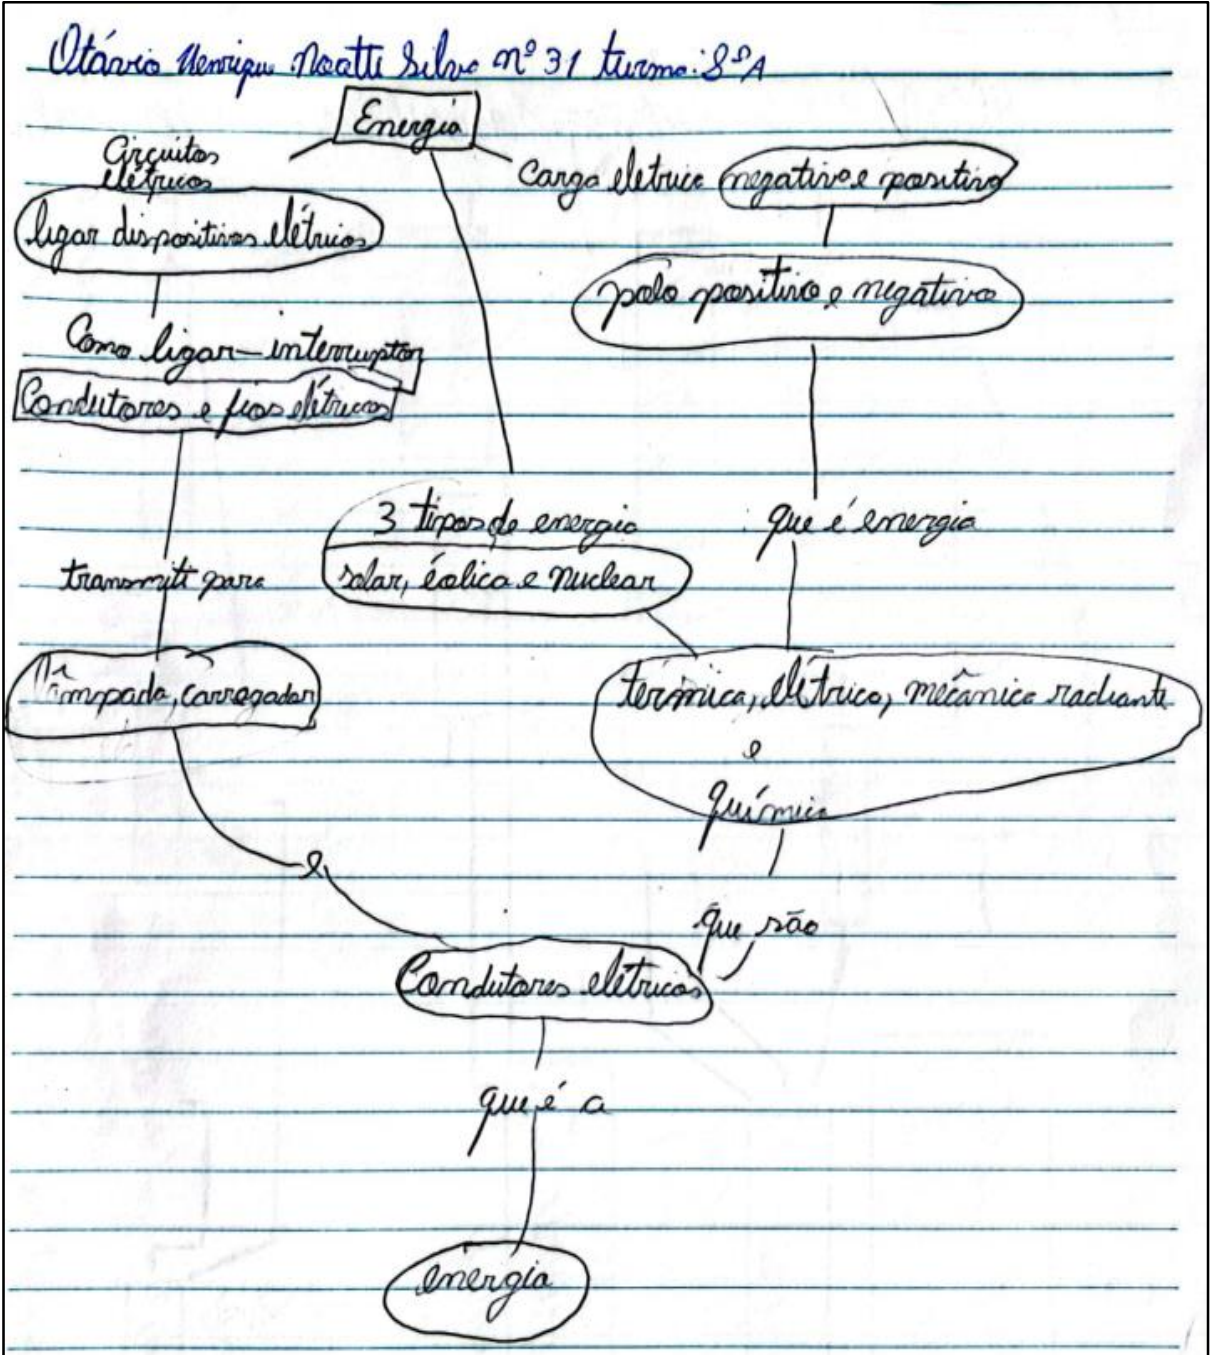 Otávio Henrique Noatti Silva nº 31 turma: 8ºA
Energia
Circuitos
elétricos
ligar dispositivos elétricos
Como ligar - interruptor
Condutores e fios elétricos
transmiti para
lâmpada, carregador
e
Carga eletrica negativo e positivo
polo positivo e negativo
que é energia
3 tipos de energia
solar, éolica e nuclear
térmica, elétrica, mecânica radiante
e
química
que são
Condutores elétricos
que é a
energia